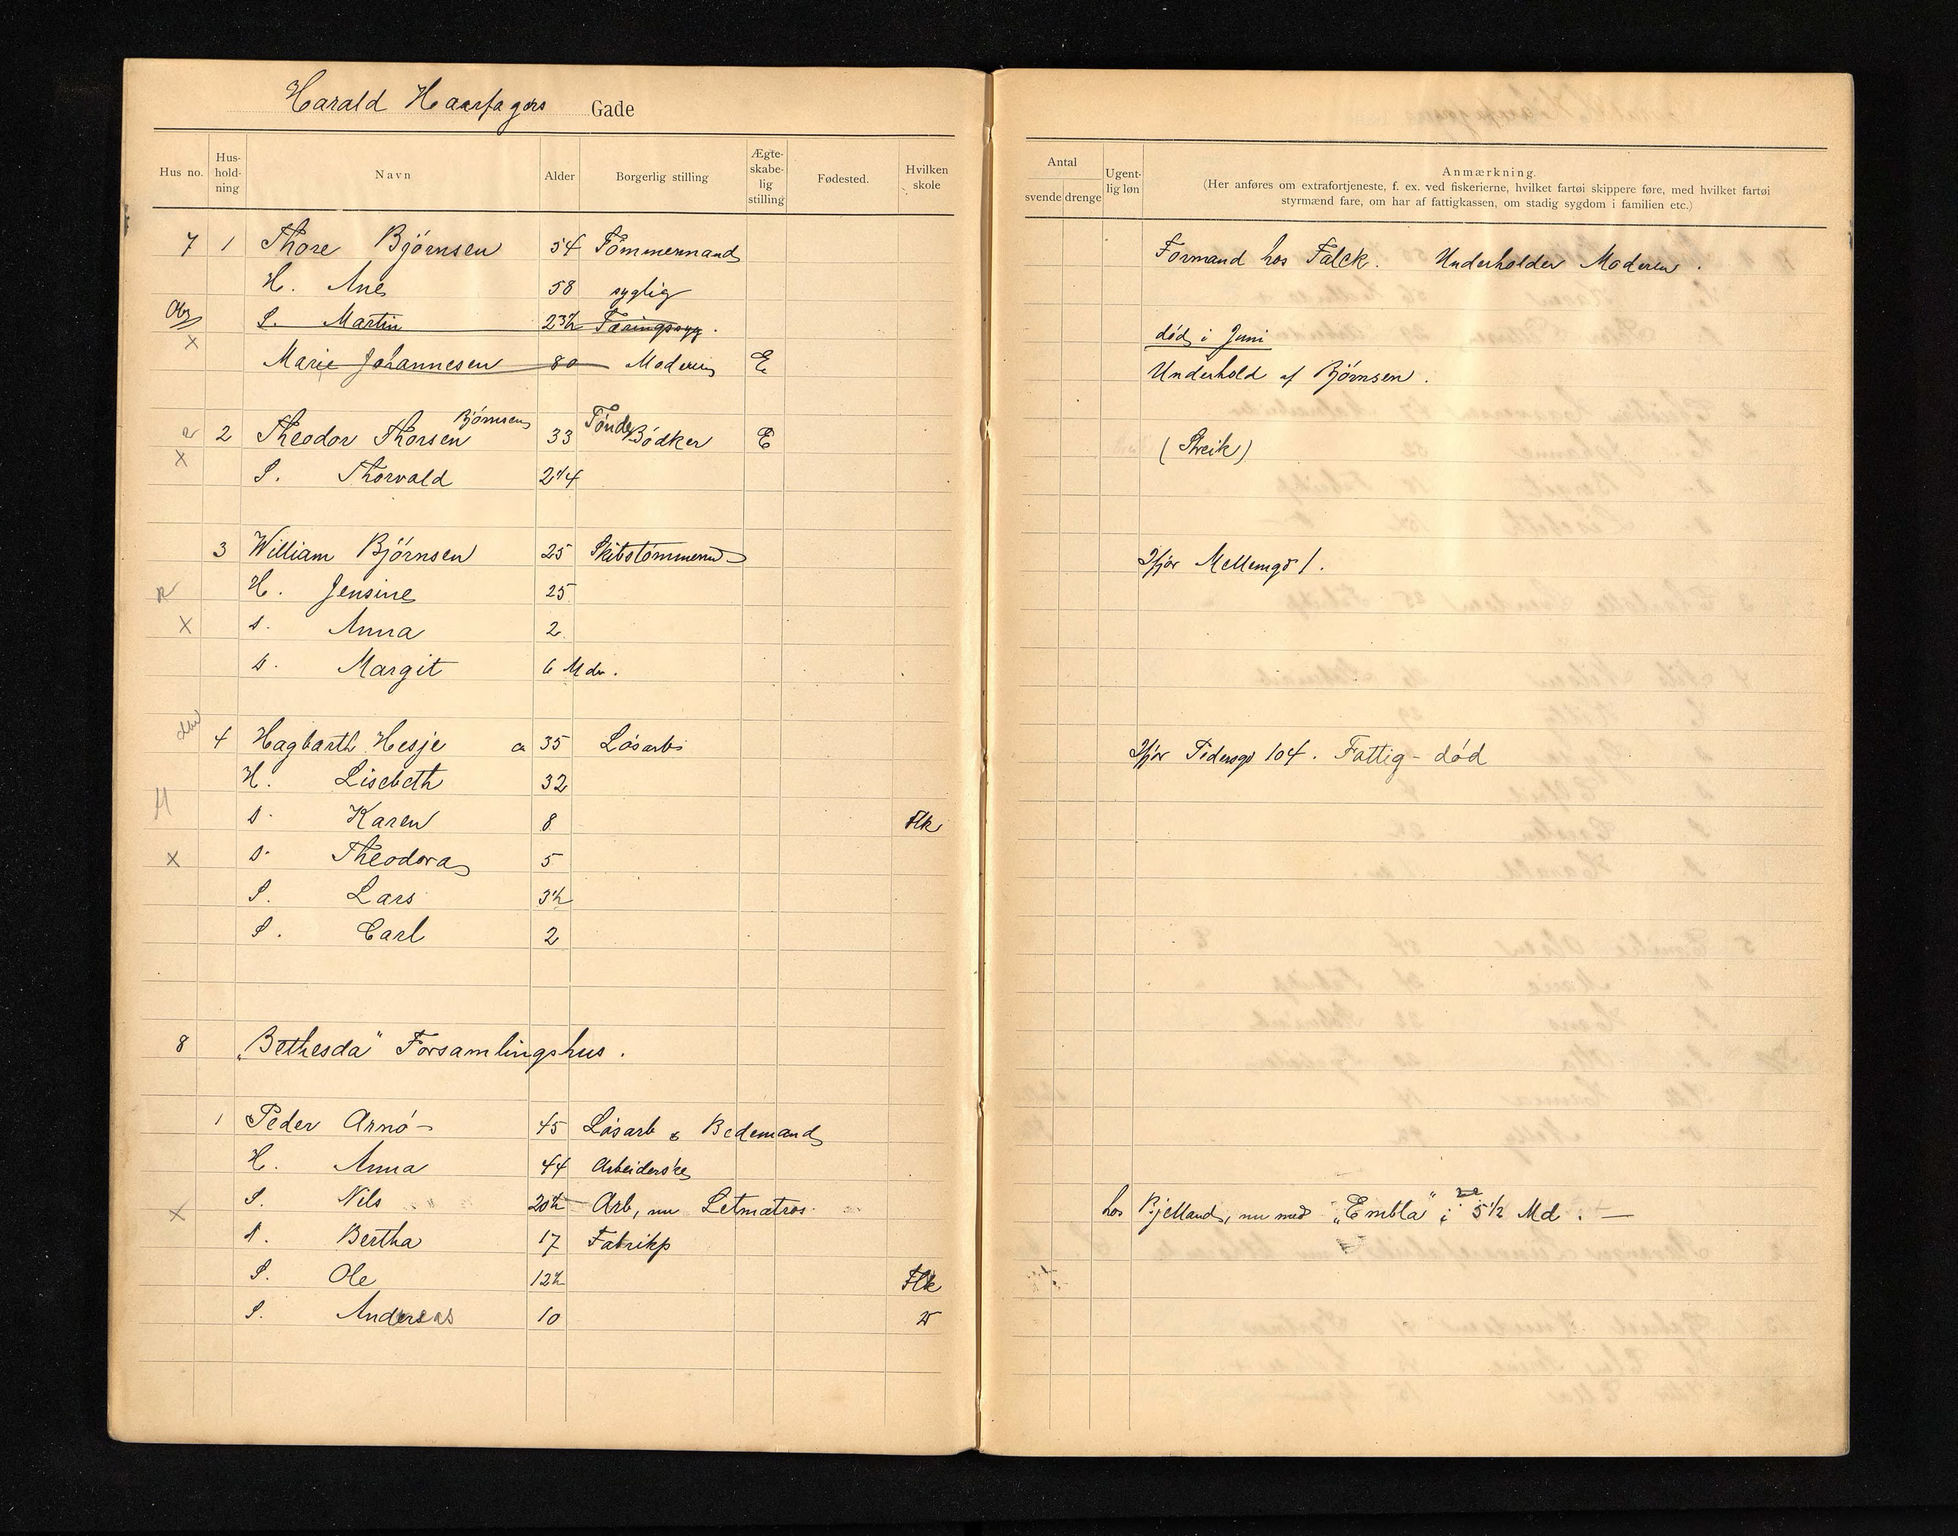 Harald Haarfagers Gade
Hus no. Hus-hold-ning Navn Alder Borgerlig stilling Ægte-skabe-lig stilling Fødested. Hvilken skole
Antal svende drenge Ugent-lig løn Anmærkning.
(Her anføres om extrafortjeneste, f. ex. ved fiskerierne, hvilket fartøi skippere føre, med hvilket fartøi
styrmænd fare, om har af fattigkassen, om stadig sygdom i familien etc.)
7 1 Thore Bjørnsen 54 Tømmermand Formand hos Falck. Underholder Moderen.
H. Ane 58 syglig
S. Martin 23½ Tæringssyg. død i Juni
x Marie Johannesen 80 Moderen E Underhold af Bjørnsen.
Bjørnsen
2 Theodor Thorsen 33 Tønde Bødker E (Streik)
x S. Thorvald 2¼
3 William Bjørnsen 25 Skibstømmerm Ifjor Mellemgd 1.
H. Jensine 25
x D. Anna 2
D. Margit 6 Mdr.
4 Hagbarth Hesje a 35 Løsarb Ifjor Pedersgd 104. Fattig - død
H. Lisebeth 32
D. Karen 8 Flk
x D. Theodora 5
S. Lars 3½
S. Carl 2
8 "Bethesda" Forsamlingshus.
1 Peder Arnø - 45 Løsarb & Bedemand
H. Anna 44 Arbeiderske
x S. Nils 20½ Arb, nu Letmatros. hos Bjelland, nu med "Embla" i 5 1/2 Md. —
D. Bertha 17 Fabrikp
S. Ole 12½ Flk
S. Andreas 10